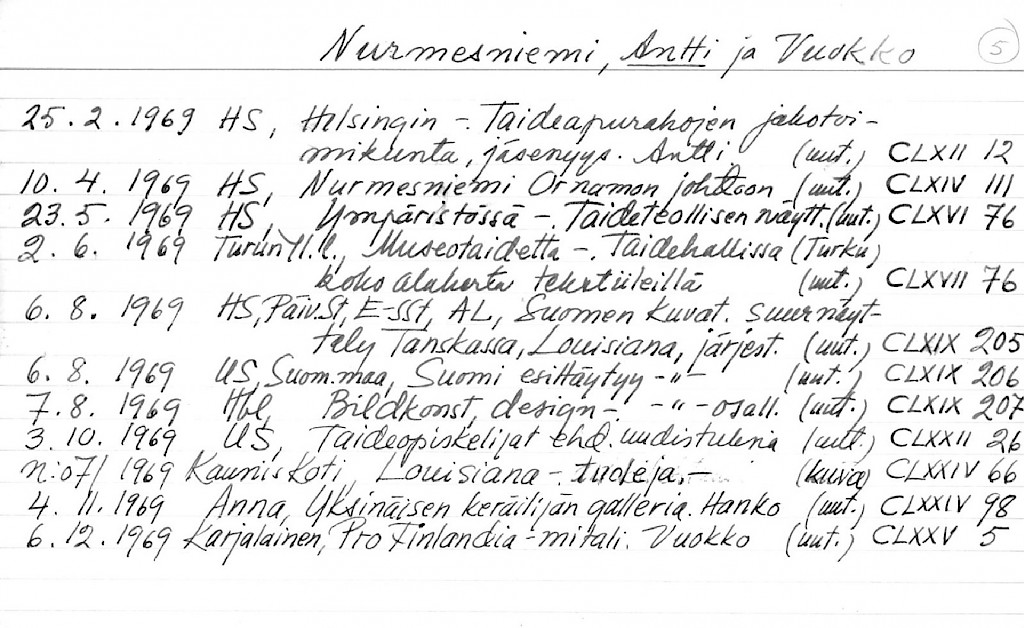 Nurmesniemi, Antti ja Vuokko 5
25.2.1969 HS, Helsingin -. Taideapurahojen jakotoi-
mikunta, jäsenyys. Antti (uut.) CLXII 12
10.4.1969 HS, Nurmesniemi Ornamon johtoon (uut.) CLXIV 111
23.5.1969 HS, Ympäristössä -. Taideteollisen näytt. (uut.) CLXVI 76
2.6.1969 Turun Yl.l., Museotaidetta -. Taidehallissa (Turku)
koko alakerta tekstiileillä (uut.) CLXVII 76
6.8.1969 HS, Päiv.St, E-SSt, AL, Suomen Kuvat. suurnäyt-
tely Tanskassa, Louisiana, järjest. (uut.) CLXIX 205
6.8.1969 US, Suom.maa, Suomi esittäytyy -"- (uut.) CLXIX 206
7.8.1969 Hbl, Bildkonst, design -. -"- osall. (uut.) CLXIX 207
3.10.1969 US, Taideopiskelijat ehd. uudistuksia (uut.) CLXXII 26
n:o7/1969 Kaunis Koti, Louisiana - tuoleja. - (kuva) CLXXIV 66
4.11.1969 Anna, Yksinäisen keräilijän galleria. Hanko (uut.) CLXXIV 98
6.12.1969 Karjalainen, Pro Finlandia - mitali. Vuokko (uut.) CLXXV 5